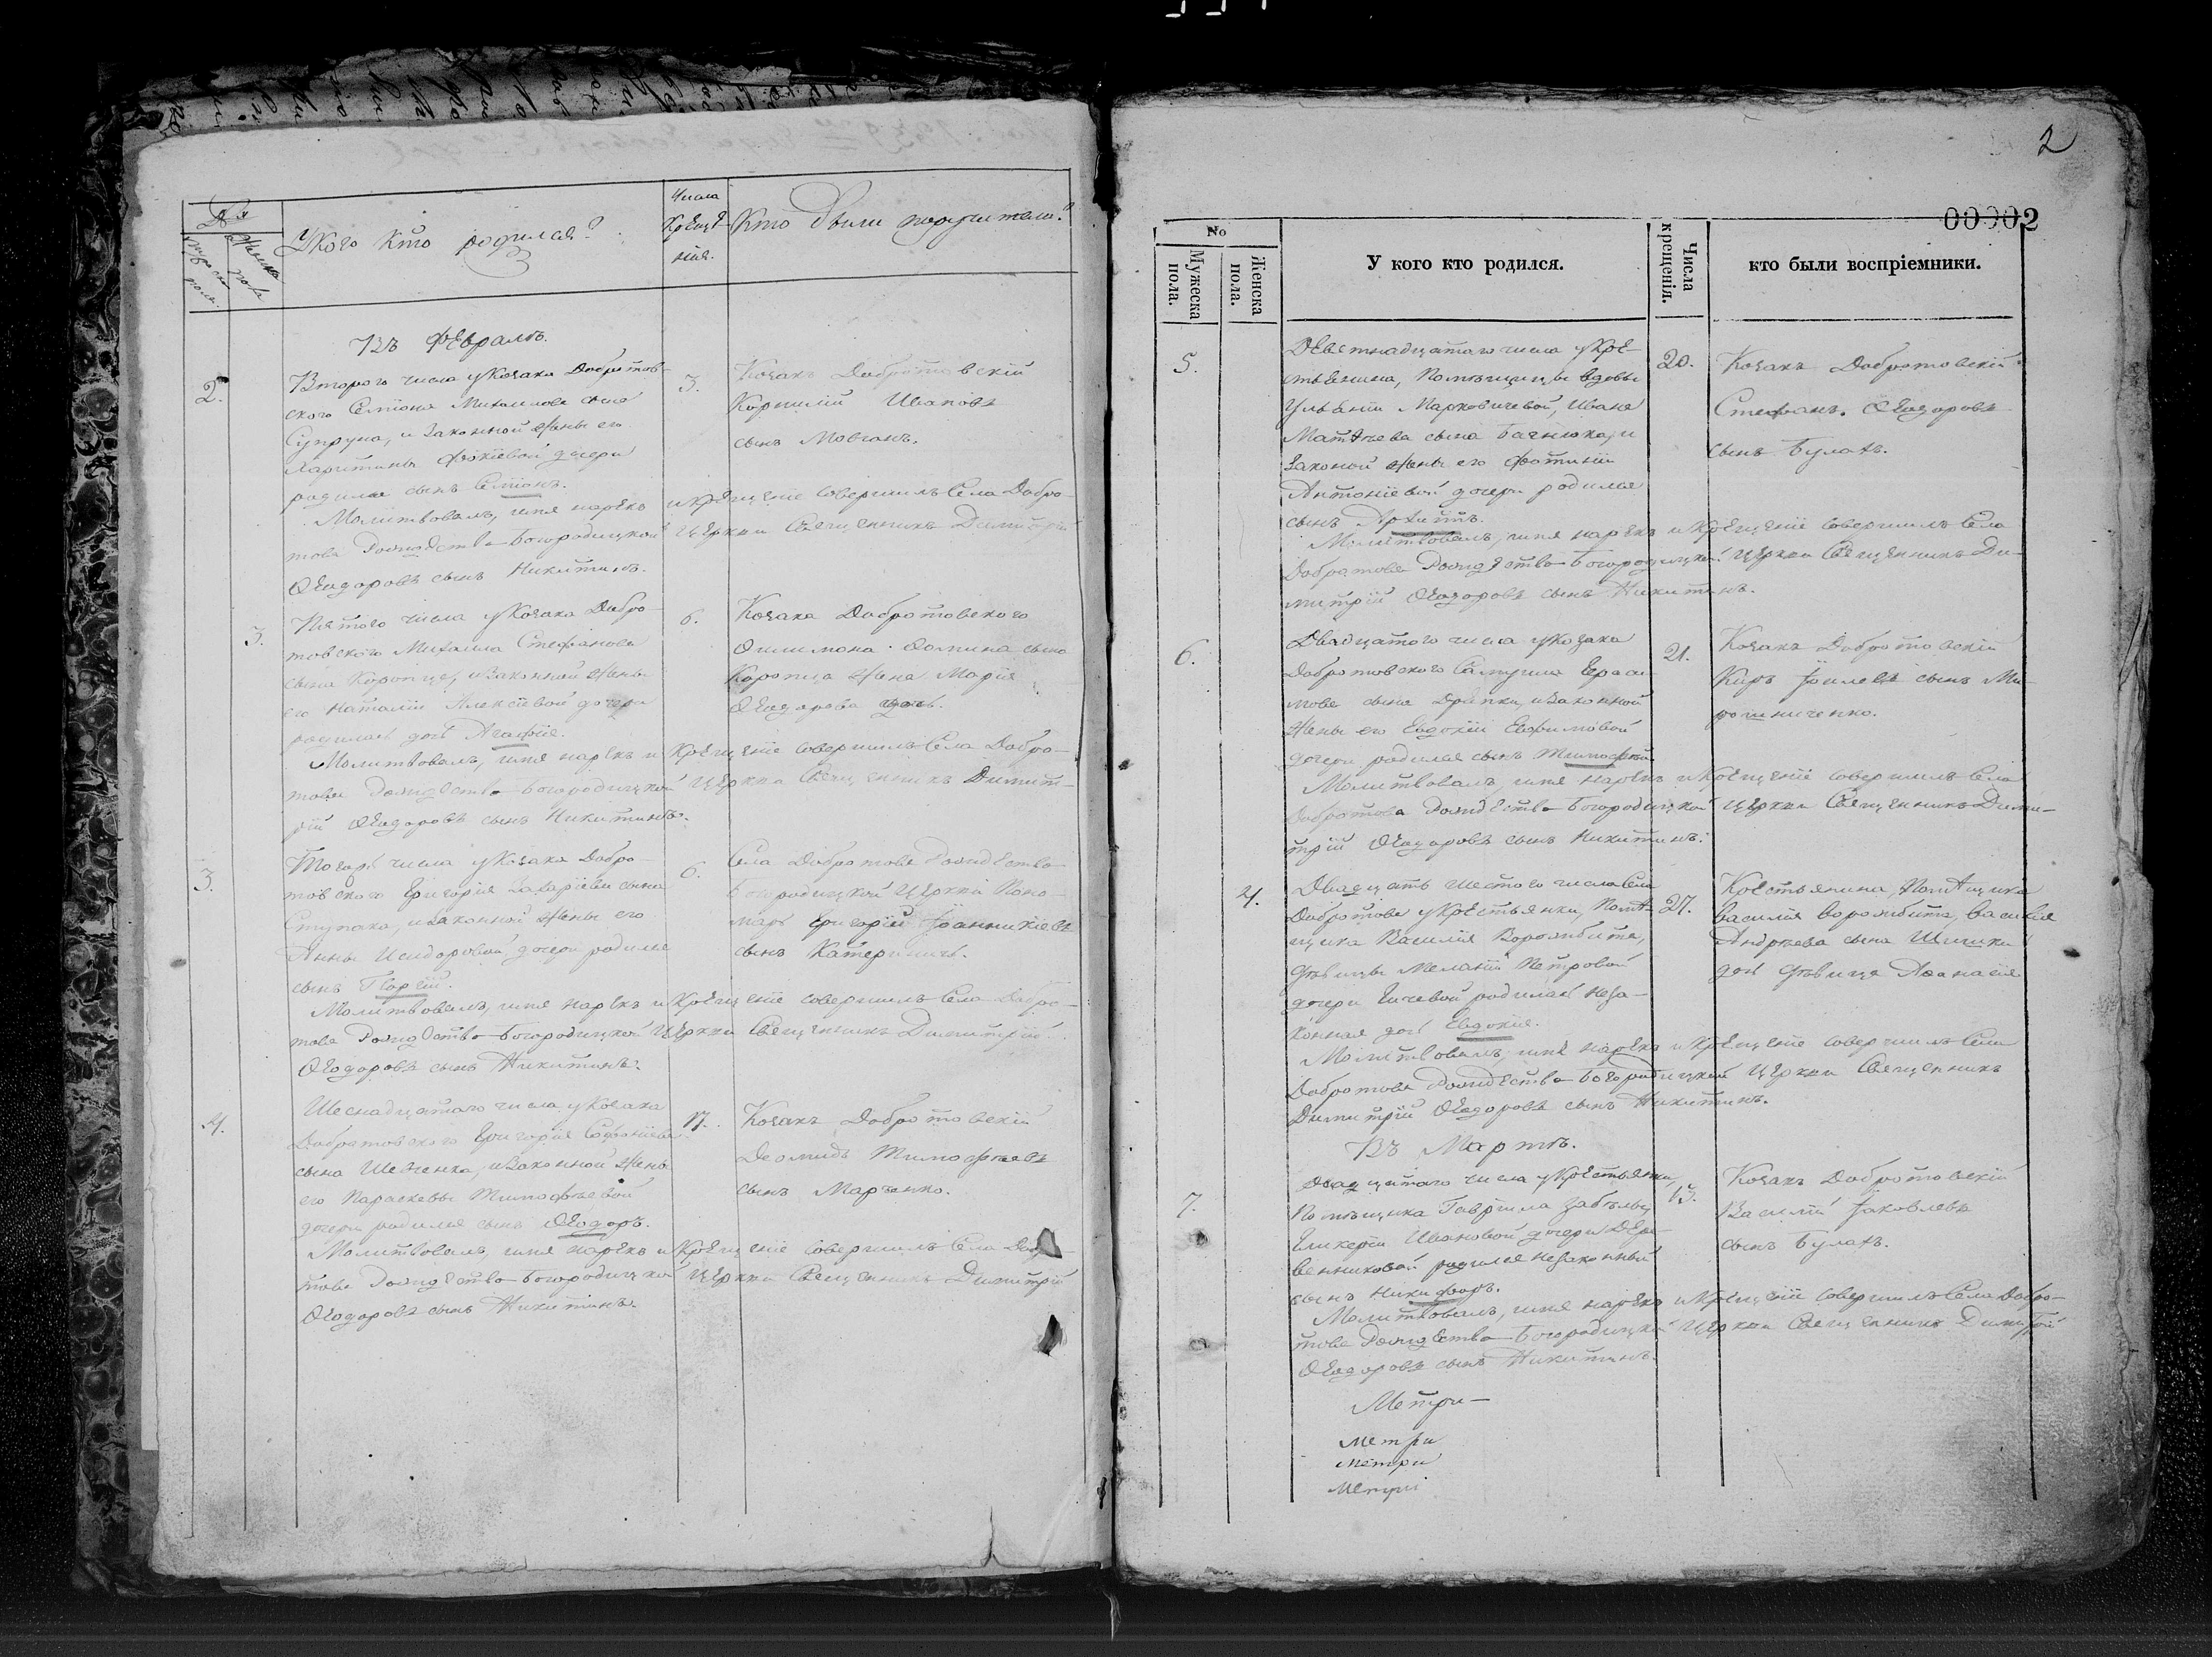 №
Мужеска пола.
Женска пола
У кого кто родился?
Числа
крещенія.
Кто были воспріемники?
Въ Февралѣ.
2.
Втораго числа у Козака Добротов-
ского Семіона Михаилова сына
Супруна, и законной жены его
Харитины Фокіевой дочери
родился сынъ Семіонъ.
3.
Козакъ Добротовскій
Корнилій Ивановъ
сынъ Мовчанъ.
Молитвовалъ, имя нарекъ и крещеніе совершилъ Села Добро-
това Рождество-Богородицкой церкви Священникъ Димитрій
Ѳеодоровъ сынъ Никитинъ.
3.
Пятого числа у Козака Добро-
товского Михаила Стефанова
сына Коропца, и законной жены
его Наталіи Алексіевой дочери
родилась дочь Агафія.
6.
Козака Добротовского
Филимона Фомина сына
Коропца жена Марія
Ѳеодорова дочь.
Молитвовалъ, имя нарекъ и крещеніе совершилъ Села Добро-
това Рождество-Богородицкой церкви Священникъ Димит-
рій Ѳеодоровъ сынъ Никитинъ.
3.
Тогожъ числа у Козака Добро-
товского Григорія Захаріева сына
Ступака, и законной жены его
Анны Исидоровой дочери родился
сынъ Георгій.
6.
Села Добротова Рождество
Богородицкой церкви Поно-
марь Григорій Іоанникіевъ
сынъ Катериничъ.
Молитвовалъ, имя нарекъ и крещеніе совершилъ Села Добро-
това Рождество-Богородицкой церкви Священникъ Димитрій
Ѳеодоровъ сынъ Никитинъ.
4.
Шеснадцятаго числа у Козака
Добротовского Григорія Софоніева
сына Шевченка, и законной жены
его Параскевы Тимофѣевой
дочери родился сынъ Ѳеодоръ.
17.
Козакъ Добротовскій
Деомидъ Тимофѣевъ
сынъ Марченко.
Молитвовалъ, имя нарекъ и крещеніе совершилъ Села Добро-
това Рождество-Богородицкой церкви Священникъ Димитрій
Ѳеодоровъ сынъ Никитинъ.
2
00002
No
Мужеска пола.
Женска пола.
У кого кто родился.
Числа крещенія.
кто были воспріемники.
5.
Девятнадцятаго числа у кре-
стьянина, Помѣщицы вдовы
Ульяніи Марковичевой, Ивана
Матвѣева сына Бачнюка, и
законой жены его Фотиніи
Антоніевой дочери родился
сынъ Архипъ.
20.
Козакъ Добротовскій
Стефанъ Ѳеодоровъ
сынъ Булахъ.
Молитвовалъ, имя нарекъ и крещеніе совершилъ Села
Добротова Рождество-Богородицкой церкви Священникъ Ди-
митрій Ѳеодоровъ сынъ Никитинъ.
6.
Двадцятого числа у Козака
Добротовского Самуила Ерас-
мова сына Дрѣпки, и законной
жены его Евдокіи Евфимовой
дочери родился сынъ Тимофей.
21.
Козакъ Добротовскій
Киръ Іоилевъ сынъ Ми-
рошниченко.
Молитвовалъ, имя нарекъ и крещеніе совершилъ Села
Добротова Рождество-Богородицкой церкви Священникъ Дими-
трій Ѳеодоровъ сынъ Никитинъ.
4.
Двадцять шестого числа Села
Добротова у крестьянки, Помѣ-
щика Василія Ворожбита,
дѣвицы Меланіи Петровой
дочери родилась неза-
конная дочь Евдокія.
27.
Крестьянина, Помѣщика
Василія Ворожбита, Василія
Андреева сына Шишки
дочь дѣвица Аѳанасія
Молитвовалъ, имя нарекъ и крещеніе совершилъ Села
Добротова Рождество-Богородицкой церкви Священникъ
Димитрій Ѳеодоровъ сынъ Никитинъ.
Въ Мартѣ.
7.
числа у крестьянки,
Помѣщика Гавріила Забѣлы,
Гликеріи Ивановой дочери Дере-
венниковой родился незаконный
сынъ Никифоръ.
13.
Козакъ Добротовскій
Василій Іаковлевъ
сынъ Булахъ.
Молитвовалъ, имя нарекъ и крещеніе совершилъ Села Добро-
това Рождество-Богородицкой церкви Священникъ Димитрій
Ѳеодоровъ сынъ Никитинъ.
Метри-
метри
метри
метри